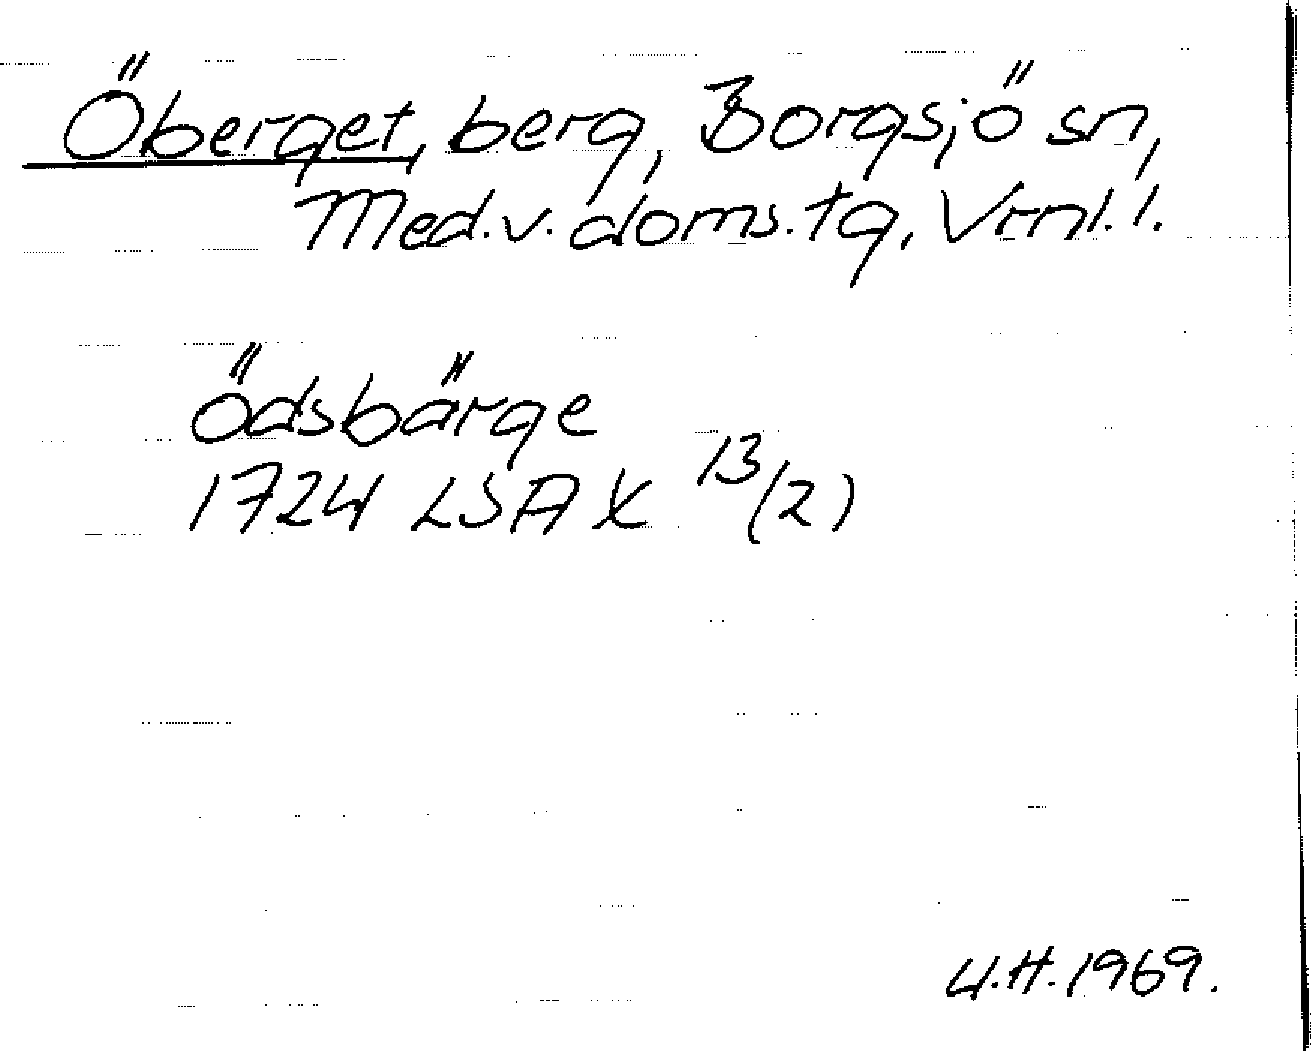 Öberget, berg, Borgsjö sn,
Med.v.doms.tg, Vrnl.l.
ödsbärge
1724 LSA X 13/(2)
U.H.1969.